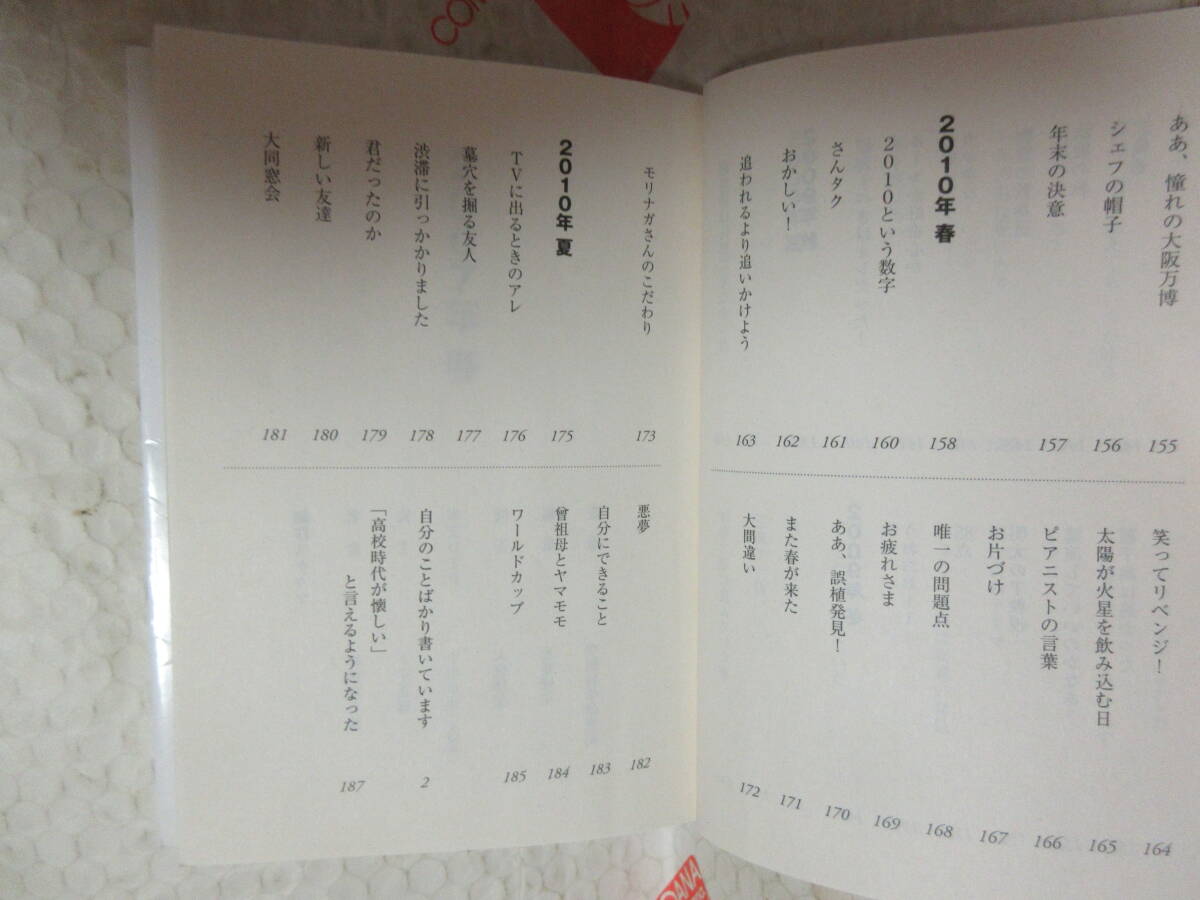 ああ、憧れの大阪万博 155
シェフの帽子 156
年末の決意 157
2010年 春 158
2010という数字 160
さんタク 161
おかしい! 162
追われるより追いかけよう 163
笑ってリベンジ! 164
太陽が火星を飲み込む日 165
ピアニストの言葉 166
お片づけ 167
唯一の問題点 168
お疲れさま 169
ああ、誤植発見! 170
また春が来た 171
大間違い 172
モリナガさんのこだわり 173
2010年 夏 175
TVに出るときのアレ 176
墓穴を掘る友人 177
渋滞に引っかかりました 178
君だったのか 179
新しい友達 180
大同窓会 181
悪夢 182
自分にできること 183
曾祖母とヤマモモ 184
ワールドカップ 185
自分のことばかり書いています 2
「高校時代が懐しい」
と言えるようになった 187